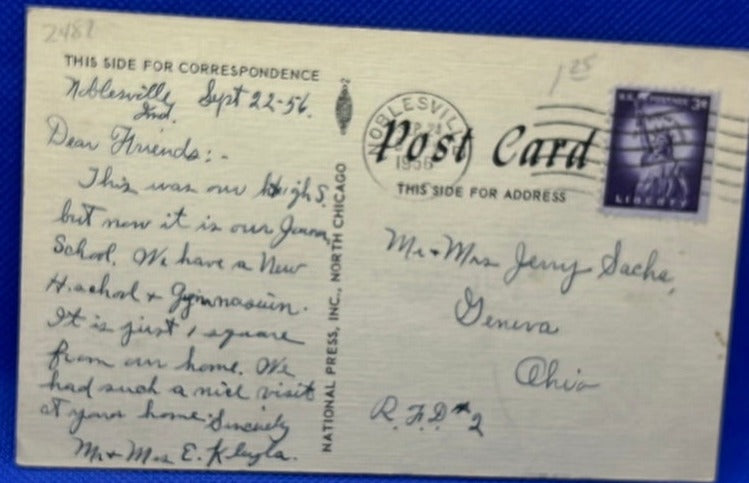 2482
1 25
THIS SIDE FOR CORRESPONDENCE
Noblesville, Sept 22-56.
Ind.
Dear Friends:-
This was our High S.
but now it is our
School. We have a New
H. school & Gymnasium.
It is just 1 square
from our home. We
had such a nice visit
at your home. Sincerely
Mr & Mrs E.
NATIONAL PRESS, INC., NORTH CHICAGO
NOBLESVILLE
1956
Post Card
THIS SIDE FOR ADDRESS
U.S. POSTAGE 3¢
LIBERTY
Mr & Mrs Jerry Sachs,
Geneva
Ohio
R.F.D. #2